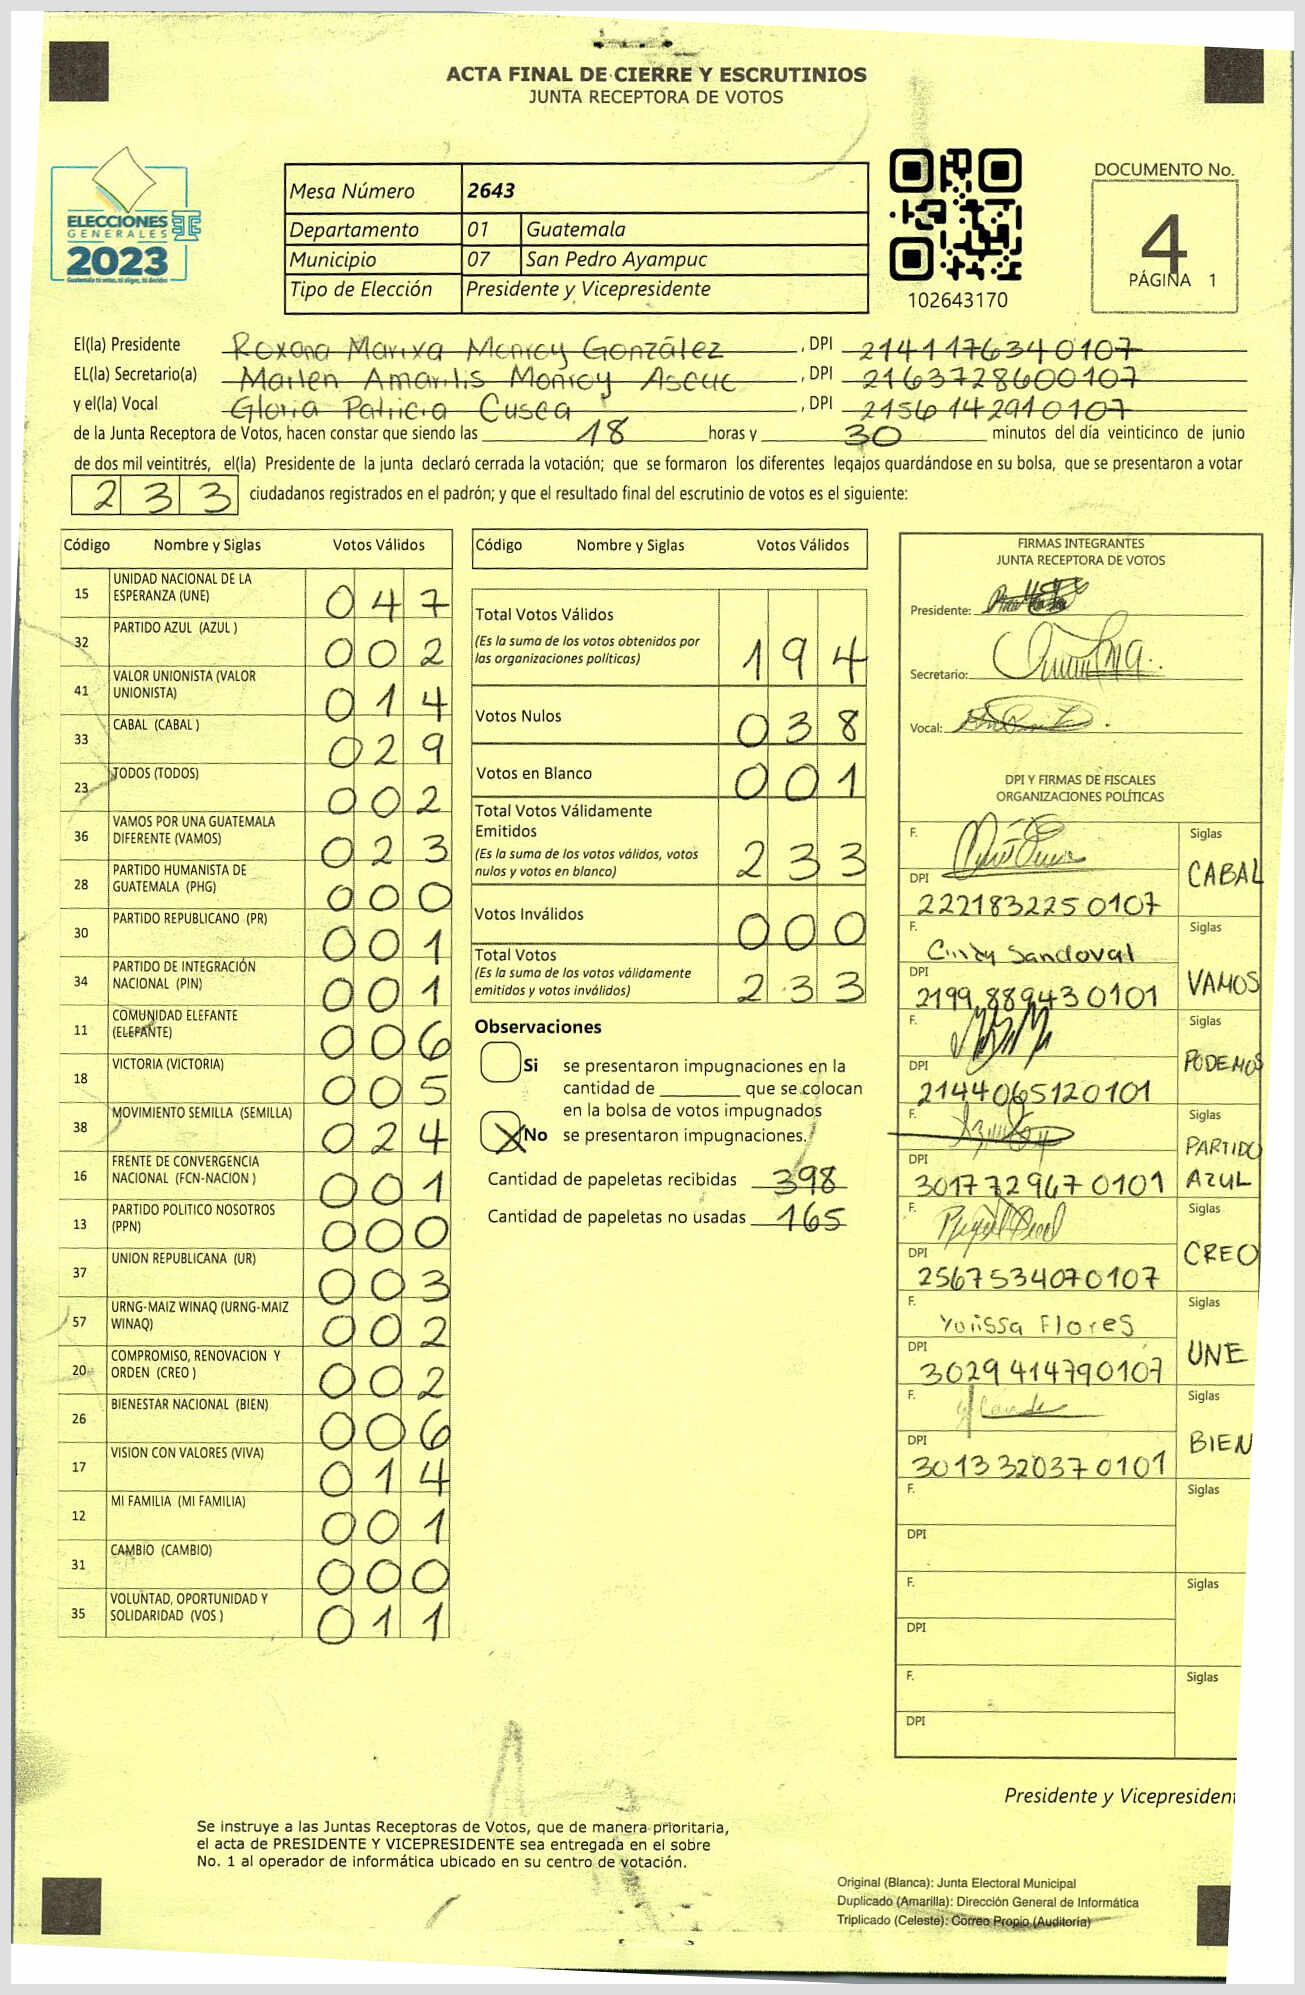 ACTA FINAL DE CIERRE Y ESCRUTINIOS
JUNTA RECEPTORA DE VOTOS
ELECCIONES
GENERALES
2023
Guatemala tú votas, tú eliges, tú decides
Mesa Número 2643
Departamento 01 Guatemala
Municipio 07 San Pedro Ayampuc
Tipo de Elección Presidente y Vicepresidente
102643170
DOCUMENTO No.
4
PÁGINA 1
El(la) Presidente Roxana Marixa Monroy González, DPI 2141176340107
EL(la) Secretario(a) Marlen Amarilis Monroy Ascuc, DPI 2163728600107
y el(la) Vocal Gloria Patricia Cusea, DPI 2156142910107
de la Junta Receptora de Votos, hacen constar que siendo las 18 horas y 30 minutos del día veinticinco de junio
de dos mil veintitrés, el(la) Presidente de la junta declaró cerrada la votación; que se formaron los diferentes legajos guardándose en su bolsa, que se presentaron a votar
233 ciudadanos registrados en el padrón; y que el resultado final del escrutinio de votos es el siguiente:
Código Nombre y Siglas Votos Válidos
15 UNIDAD NACIONAL DE LA ESPERANZA (UNE) 047
32 PARTIDO AZUL (AZUL ) 002
41 VALOR UNIONISTA (VALOR UNIONISTA) 014
33 CABAL (CABAL ) 029
23 TODOS (TODOS) 002
36 VAMOS POR UNA GUATEMALA DIFERENTE (VAMOS) 023
28 PARTIDO HUMANISTA DE GUATEMALA (PHG) 000
30 PARTIDO REPUBLICANO (PR) 001
34 PARTIDO DE INTEGRACIÓN NACIONAL (PIN) 001
11 COMUNIDAD ELEFANTE (ELEFANTE) 006
18 VICTORIA (VICTORIA) 005
38 MOVIMIENTO SEMILLA (SEMILLA) 024
16 FRENTE DE CONVERGENCIA NACIONAL (FCN-NACION ) 001
13 PARTIDO POLITICO NOSOTROS (PPN) 000
37 UNION REPUBLICANA (UR) 003
57 URNG-MAIZ WINAQ (URNG-MAIZ WINAQ) 002
20 COMPROMISO, RENOVACION Y ORDEN (CREO ) 002
26 BIENESTAR NACIONAL (BIEN) 006
17 VISION CON VALORES (VIVA) 014
12 MI FAMILIA (MI FAMILIA) 001
31 CAMBIO (CAMBIO) 000
35 VOLUNTAD, OPORTUNIDAD Y SOLIDARIDAD (VOS ) 011
Código Nombre y Siglas Votos Válidos
Total Votos Válidos
(Es la suma de los votos obtenidos por
las organizaciones políticas) 194
Votos Nulos 038
Votos en Blanco 001
Total Votos Válidamente
Emitidos
(Es la suma de los votos válidos, votos
nulos y votos en blanco) 233
Votos Inválidos 000
Total Votos
(Es la suma de los votos válidamente
emitidos y votos inválidos) 233
Observaciones
Si se presentaron impugnaciones en la
cantidad de ________ que se colocan
en la bolsa de votos impugnados
X No se presentaron impugnaciones.
Cantidad de papeletas recibidas 398
Cantidad de papeletas no usadas 165
FIRMAS INTEGRANTES
JUNTA RECEPTORA DE VOTOS
Presidente:
Secretario:
Vocal:
DPI Y FIRMAS DE FISCALES
ORGANIZACIONES POLÍTICAS
F. Siglas
CABAL
DPI
222183225 0107
F. Cindy Sandoval Siglas
VAMOS
DPI
2199 88943 0101
F. Siglas
PODEMOS
DPI
2144065120101
F. Siglas
PARTIDO
AZUL
DPI
301772967 0101
F. Siglas
CREO
DPI
2567534070107
F. Yulissa Flores Siglas
UNE
DPI
3029 414790107
F. Siglas
BIEN
DPI
3013 32037 0101
F. Siglas
DPI
F. Siglas
DPI
F. Siglas
DPI
Presidente y Vicepresident
Se instruye a las Juntas Receptoras de Votos, que de manera prioritaria,
el acta de PRESIDENTE Y VICEPRESIDENTE sea entregada en el sobre
No. 1 al operador de informática ubicado en su centro de votación.
Original (Blanca): Junta Electoral Municipal
Duplicado (Amarilla): Dirección General de Informática
Triplicado (Celeste): Correo Propio (Auditoría)